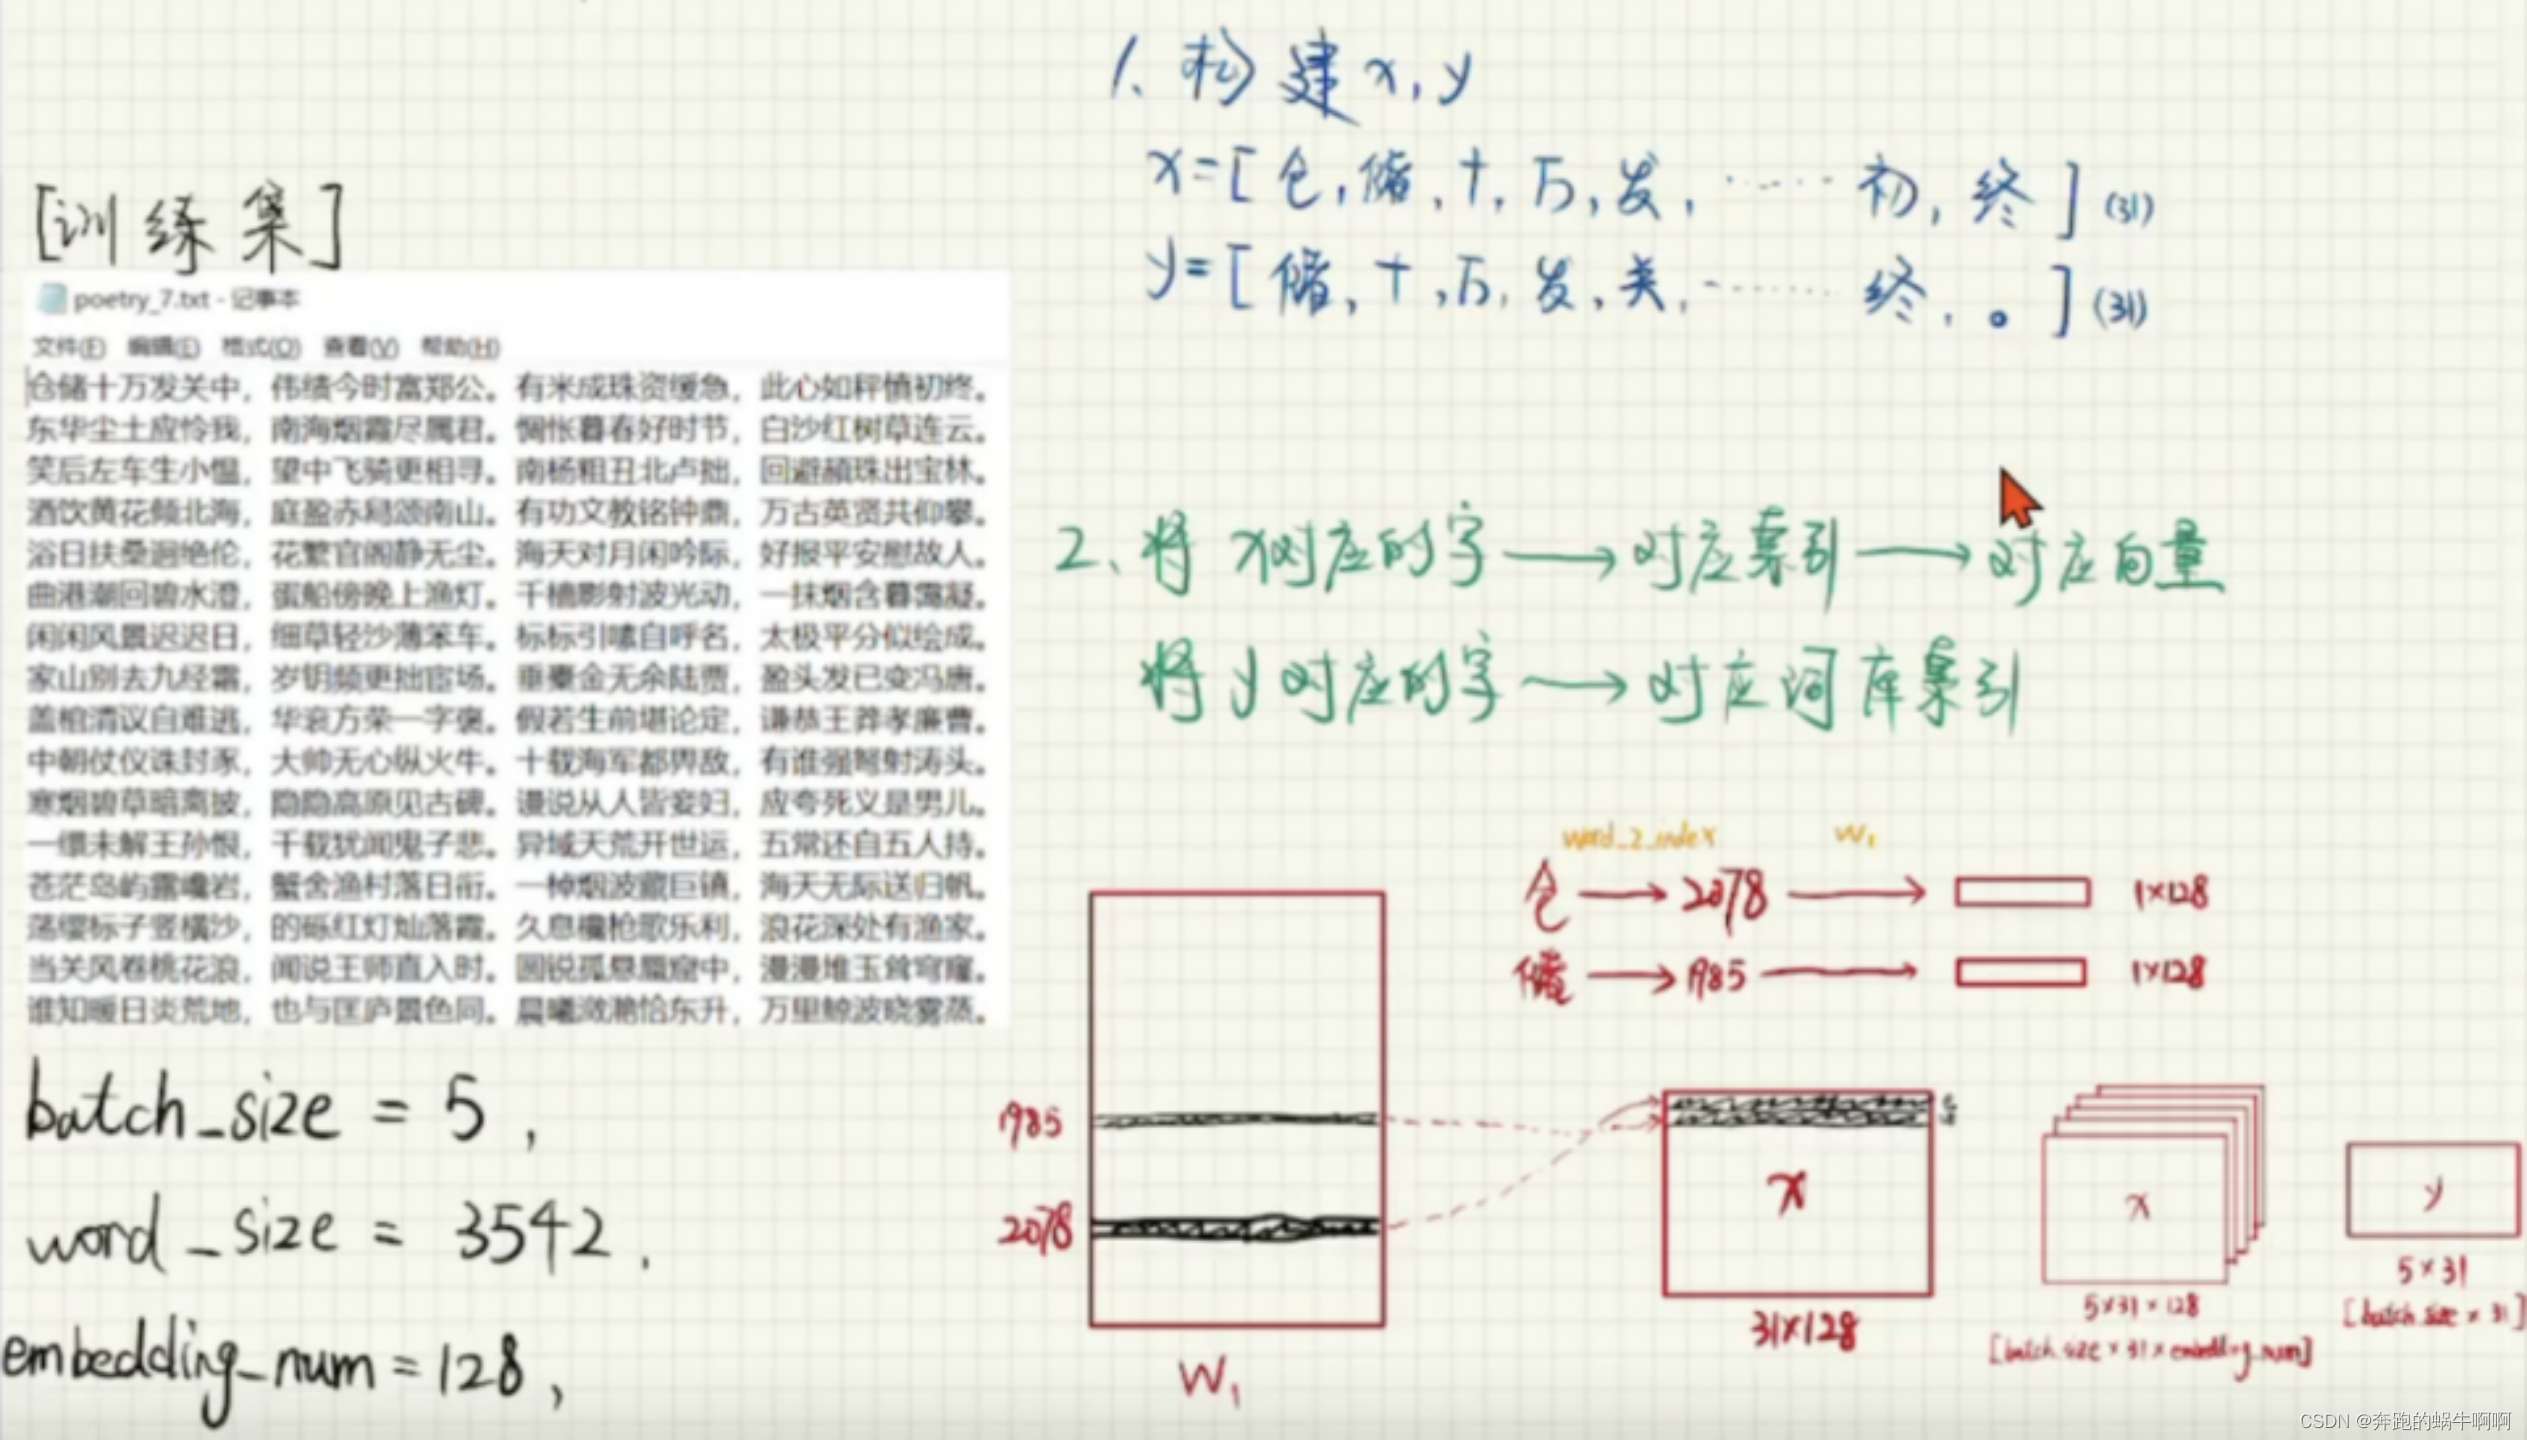 [训练集]
poetry_7.txt - 记事本
文件(F) 编辑(E) 格式(O) 查看(V) 帮助(H)
仓储十万发关中，伟绩今时富郑公。有米成珠资缓急，此心如秤慎初终。
东华尘土应怜我，南海烟霞尽属君。惆怅暮春好时节，白沙红树草连云。
笑后左车生小愠，望中飞骑更相寻。南杨粗丑北卢拙，回避赪珠出宝林。
酒饮黄花倾北海，庭盈赤舄颂南山。有功文教铭钟鼎，万古英贤共仰攀。
浴日扶桑迥绝伦，花繁官阁静无尘。海天对月闲吟际，好报平安慰故人。
曲港潮回碧水澄，蛋船傍晚上渔灯。千樯影射波光动，一抹烟含暮霭凝。
闲闲风景迟迟日，细草轻沙薄笨车。标标引嗉自呼名，太极平分似绘成。
家山别去九经霜，岁钥频更拙宦场。垂橐金无余陆贾，盈头发已变冯唐。
盖棺清议自难逃，华衮方荣一字褒。假若生前堪论定，谦恭王莽孝廉曹。
中朝仗仪诛封豕，大帅无心纵火牛。十载海军都畀敌，有谁强弩射涛头。
寒烟碧草暗离披，隐隐高原见古碑。谩说从人皆妾妇，应夸死义是男儿。
一缳未解王孙恨，千载犹闻鬼子悲。异域天荒开世运，五常还自五人持。
苍茫岛屿露巉岩，蟹舍渔村落日衔。一棹烟波藏巨镇，海天无际送归帆。
荡缨标子竖横沙，的砾红灯灿落霞。久息欃枪歌乐利，浪花深处有渔家。
当关风卷桃花浪，闻说王师直入时。圆锐孤悬蜃窟中，漫漫堆玉耸穹窿。
谁知暖日炎荒地，也与匡庐景色同。晨曦潋滟恰东升，万里鲸波晓雾蒸。
batch_size = 5 ,
word_size = 3542 ,
embedding_num = 128 ,
1、构建 x, y
x=[仓,储,十,万,发,······初,终] (31)
y=[储,十,万,发,关,······终,。] (31)
2、将 x对应的字 → 对应索引 → 对应向量
将 y 对应的字 → 对应词库索引
word_2_index W1
仓 → 2078 → 1×128
储 → 1985 → 1×128
1985
2078
W1
x
31×128
x
5×31×128
[batch_size × 31 × embedding_num]
y
5×31
[batch_size × 31]
CSDN @奔跑的蜗牛啊啊